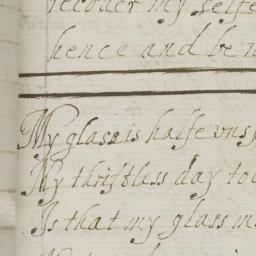 recouer my selfe
hence and be
My glass is halfe vnsp
My thriftless day too
Is that my glass